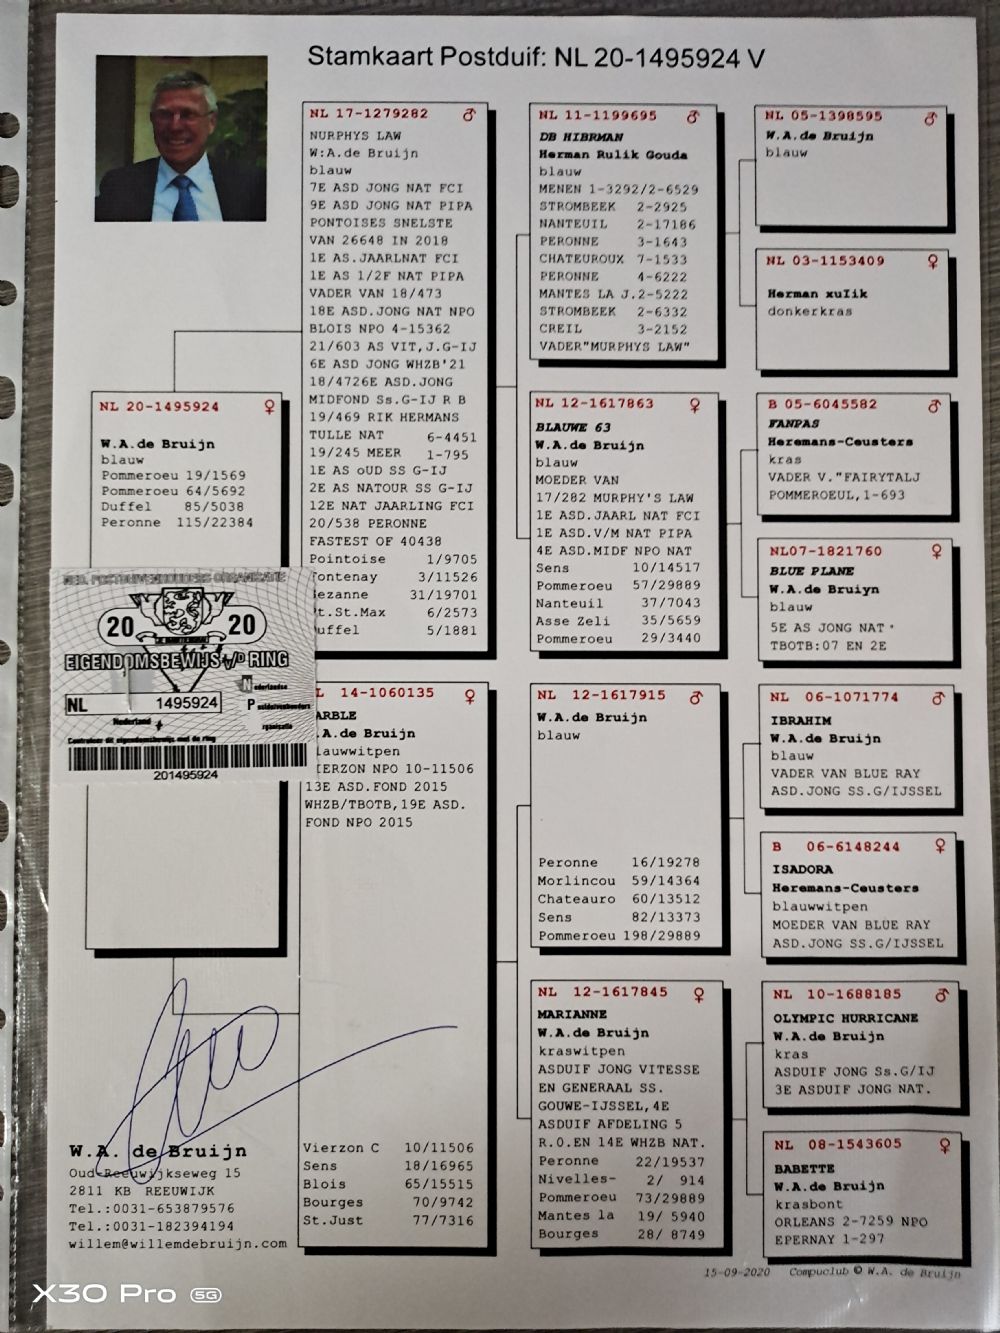 Stamkaart Postduif: NL 20-1495924 V
NL 20-1495924 ♀
W.A.de Bruijn
blauw
Pommeroeu 19/1569
Pommeroeu 64/5692
Duffel 85/5038
Peronne 115/22384
NED. POSTDUIVENHOUDERS ORGANISATIE
20 20
EIGENDOMSBEWIJS v/D RING
NL 1495924
Nederland
Nederlandse
Postduivenhouders
rganisatie
Controleer dit eigendomsbewijs met de ring
201495924
W.A. de Bruijn
Oud-Reeuwijkseweg 15
2811 KB REEUWIJK
Tel.:0031-653879576
Tel.:0031-182394194
willem@willemdebruijn.com
NL 17-1279282 ♂
NURPHYS LAW
W:A.de Bruijn
blauw
7E ASD JONG NAT FCI
9E ASD JONG NAT PIPA
PONTOISES SNELSTE
VAN 26648 IN 2018
1E AS.JAARLNAT FCI
1E AS 1/2F NAT PIPA
VADER VAN 18/473
18E ASD.JONG NAT NPO
BLOIS NPO 4-15362
21/603 AS VIT,J.G-IJ
6E ASD JONG WHZB'21
18/4726E ASD.JONG
MIDFOND Ss.G-IJ R B
19/469 RIK HERMANS
TULLE NAT 6-4451
19/245 MEER 1-795
1E AS oUD SS G-IJ
2E AS NATOUR SS G-IJ
12E NAT JAARLING FCI
20/538 PERONNE
FASTEST OF 40438
Pointoise 1/9705
Fontenay 3/11526
ezanne 31/19701
t.St.Max 6/2573
uffel 5/1881
L 14-1060135 ♀
ARBLE
.A.de Bruijn
lauwwitpen
IERZON NPO 10-11506
13E ASD.FOND 2015
WHZB/TBOTB,19E ASD.
FOND NPO 2015
Vierzon C 10/11506
Sens 18/16965
Blois 65/15515
Bourges 70/9742
St.Just 77/7316
NL 11-1199695 ♂
DB HIBRMAN
Herman Rulik Gouda
blauw
MENEN 1-3292/2-6529
STROMBEEK 2-2925
NANTEUIL 2-17186
PERONNE 3-1643
CHATEUROUX 7-1533
PERONNE 4-6222
MANTES LA J.2-5222
STROMBEEK 2-6332
CREIL 3-2152
VADER"MURPHYS LAW"
NL 12-1617863 ♀
BLAUWE 63
W.A.de Bruijn
blauw
MOEDER VAN
17/282 MURPHY'S LAW
1E ASD.JAARL NAT FCI
1E ASD.V/M NAT PIPA
4E ASD.MIDF NPO NAT
Sens 10/14517
Pommeroeu 57/29889
Nanteuil 37/7043
Asse Zeli 35/5659
Pommeroeu 29/3440
NL 12-1617915 ♂
W.A.de Bruijn
blauw
Peronne 16/19278
Morlincou 59/14364
Chateauro 60/13512
Sens 82/13373
Pommeroeu 198/29889
NL 12-1617845 ♀
MARIANNE
W.A.de Bruijn
kraswitpen
ASDUIF JONG VITESSE
EN GENERAAL SS.
GOUWE-IJSSEL,4E
ASDUIF AFDELING 5
R.O.EN 14E WHZB NAT.
Peronne 22/19537
Nivelles- 2/ 914
Pommeroeu 73/29889
Mantes la 19/ 5940
Bourges 28/ 8749
NL 05-1398595 ♂
W.A.de Bruijn
blauw
NL 03-1153409 ♀
Herman xulik
donkerkras
B 05-6045582 ♂
FANPAS
Heremans-Ceusters
kras
VADER V."FAIRYTALJ
POMMEROEUL,1-693
NL07-1821760 ♀
BLUE PLANE
W.A.de Bruiyn
blauw
5E AS JONG NAT
TBOTB:07 EN 2E
NL 06-1071774 ♂
IBRAHIM
W.A.de Bruijn
blauw
VADER VAN BLUE RAY
ASD.JONG SS.G/IJSSEL
B 06-6148244 ♀
ISADORA
Heremans-Ceusters
blauwwitpen
MOEDER VAN BLUE RAY
ASD.JONG SS.G/IJSSEL
NL 10-1688185 ♂
OLYMPIC HURRICANE
W.A.de Bruijn
kras
ASDUIF JONG Ss.G/IJ
3E ASDUIF JONG NAT.
NL 08-1543605 ♀
BABETTE
W.A.de Bruijn
krasbont
ORLEANS 2-7259 NPO
EPERNAY 1-297
15-09-2020 Compuclub © W.A. de Bruijn
X30 Pro 5G